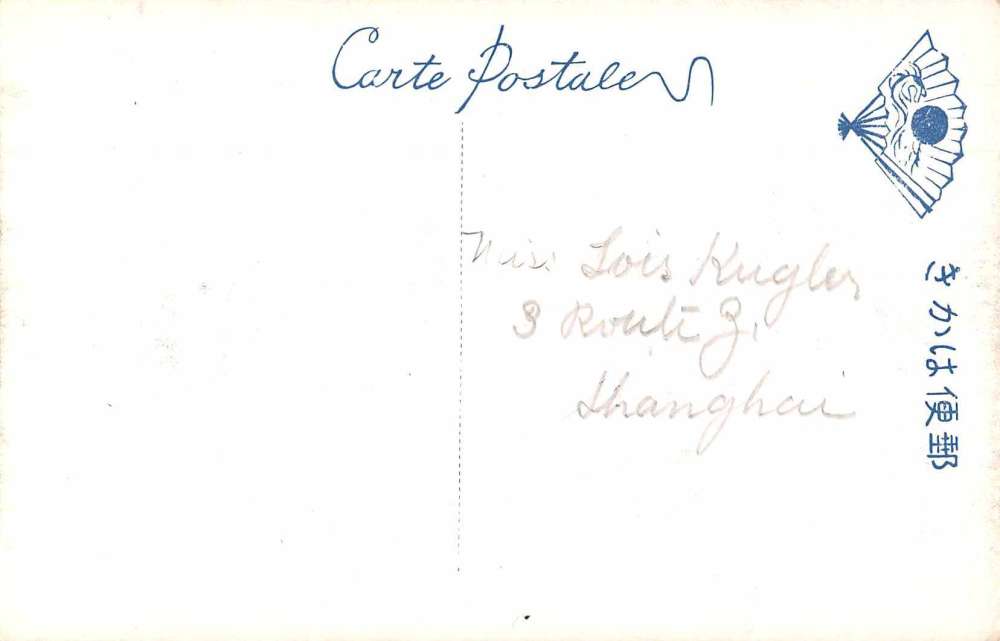 Carte Postale
Miss Lois Kugler
3 Route Z.
Shanghai
郵便はかき